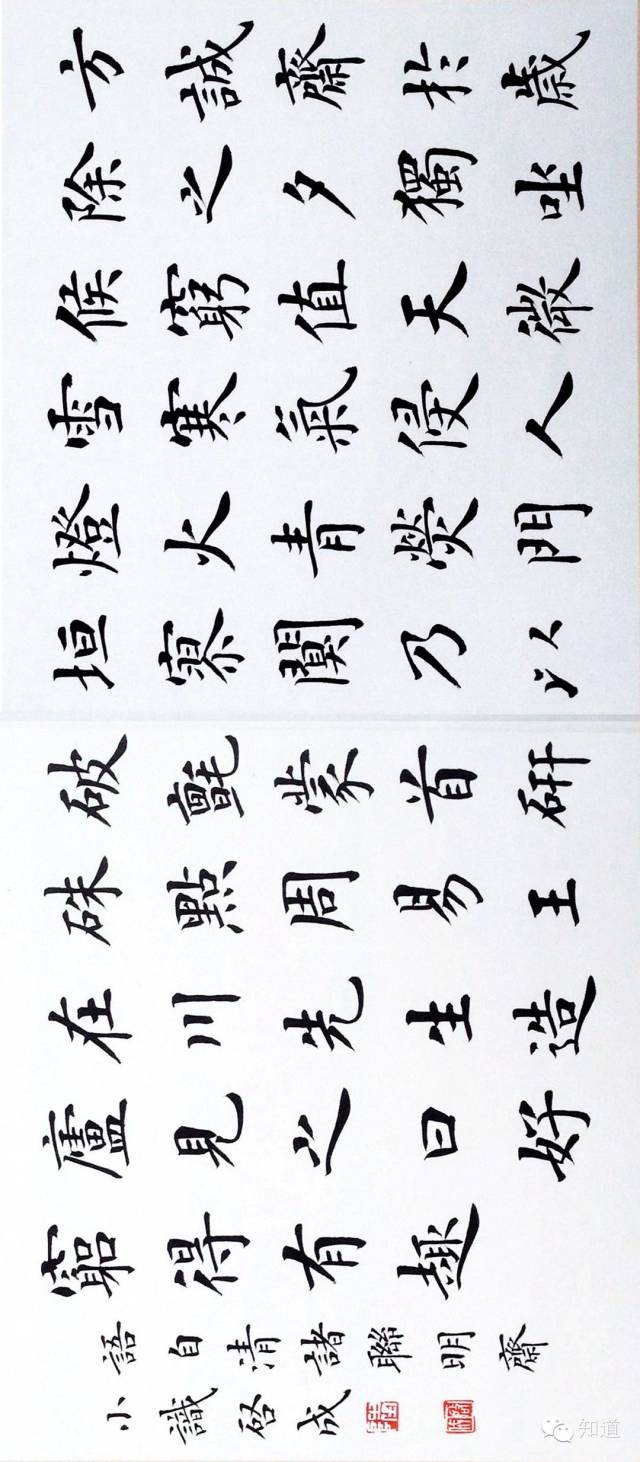 方誠齋於歲
除之夕獨坐
候窮值天微
雪寒氣侵人
燈火青熒門
垣寥闃乃以
破氈蒙首研
硃點周易王
在川先生造
廬見之曰好
窮得有趣
語自清諸聯明齋
小識啓成
知道